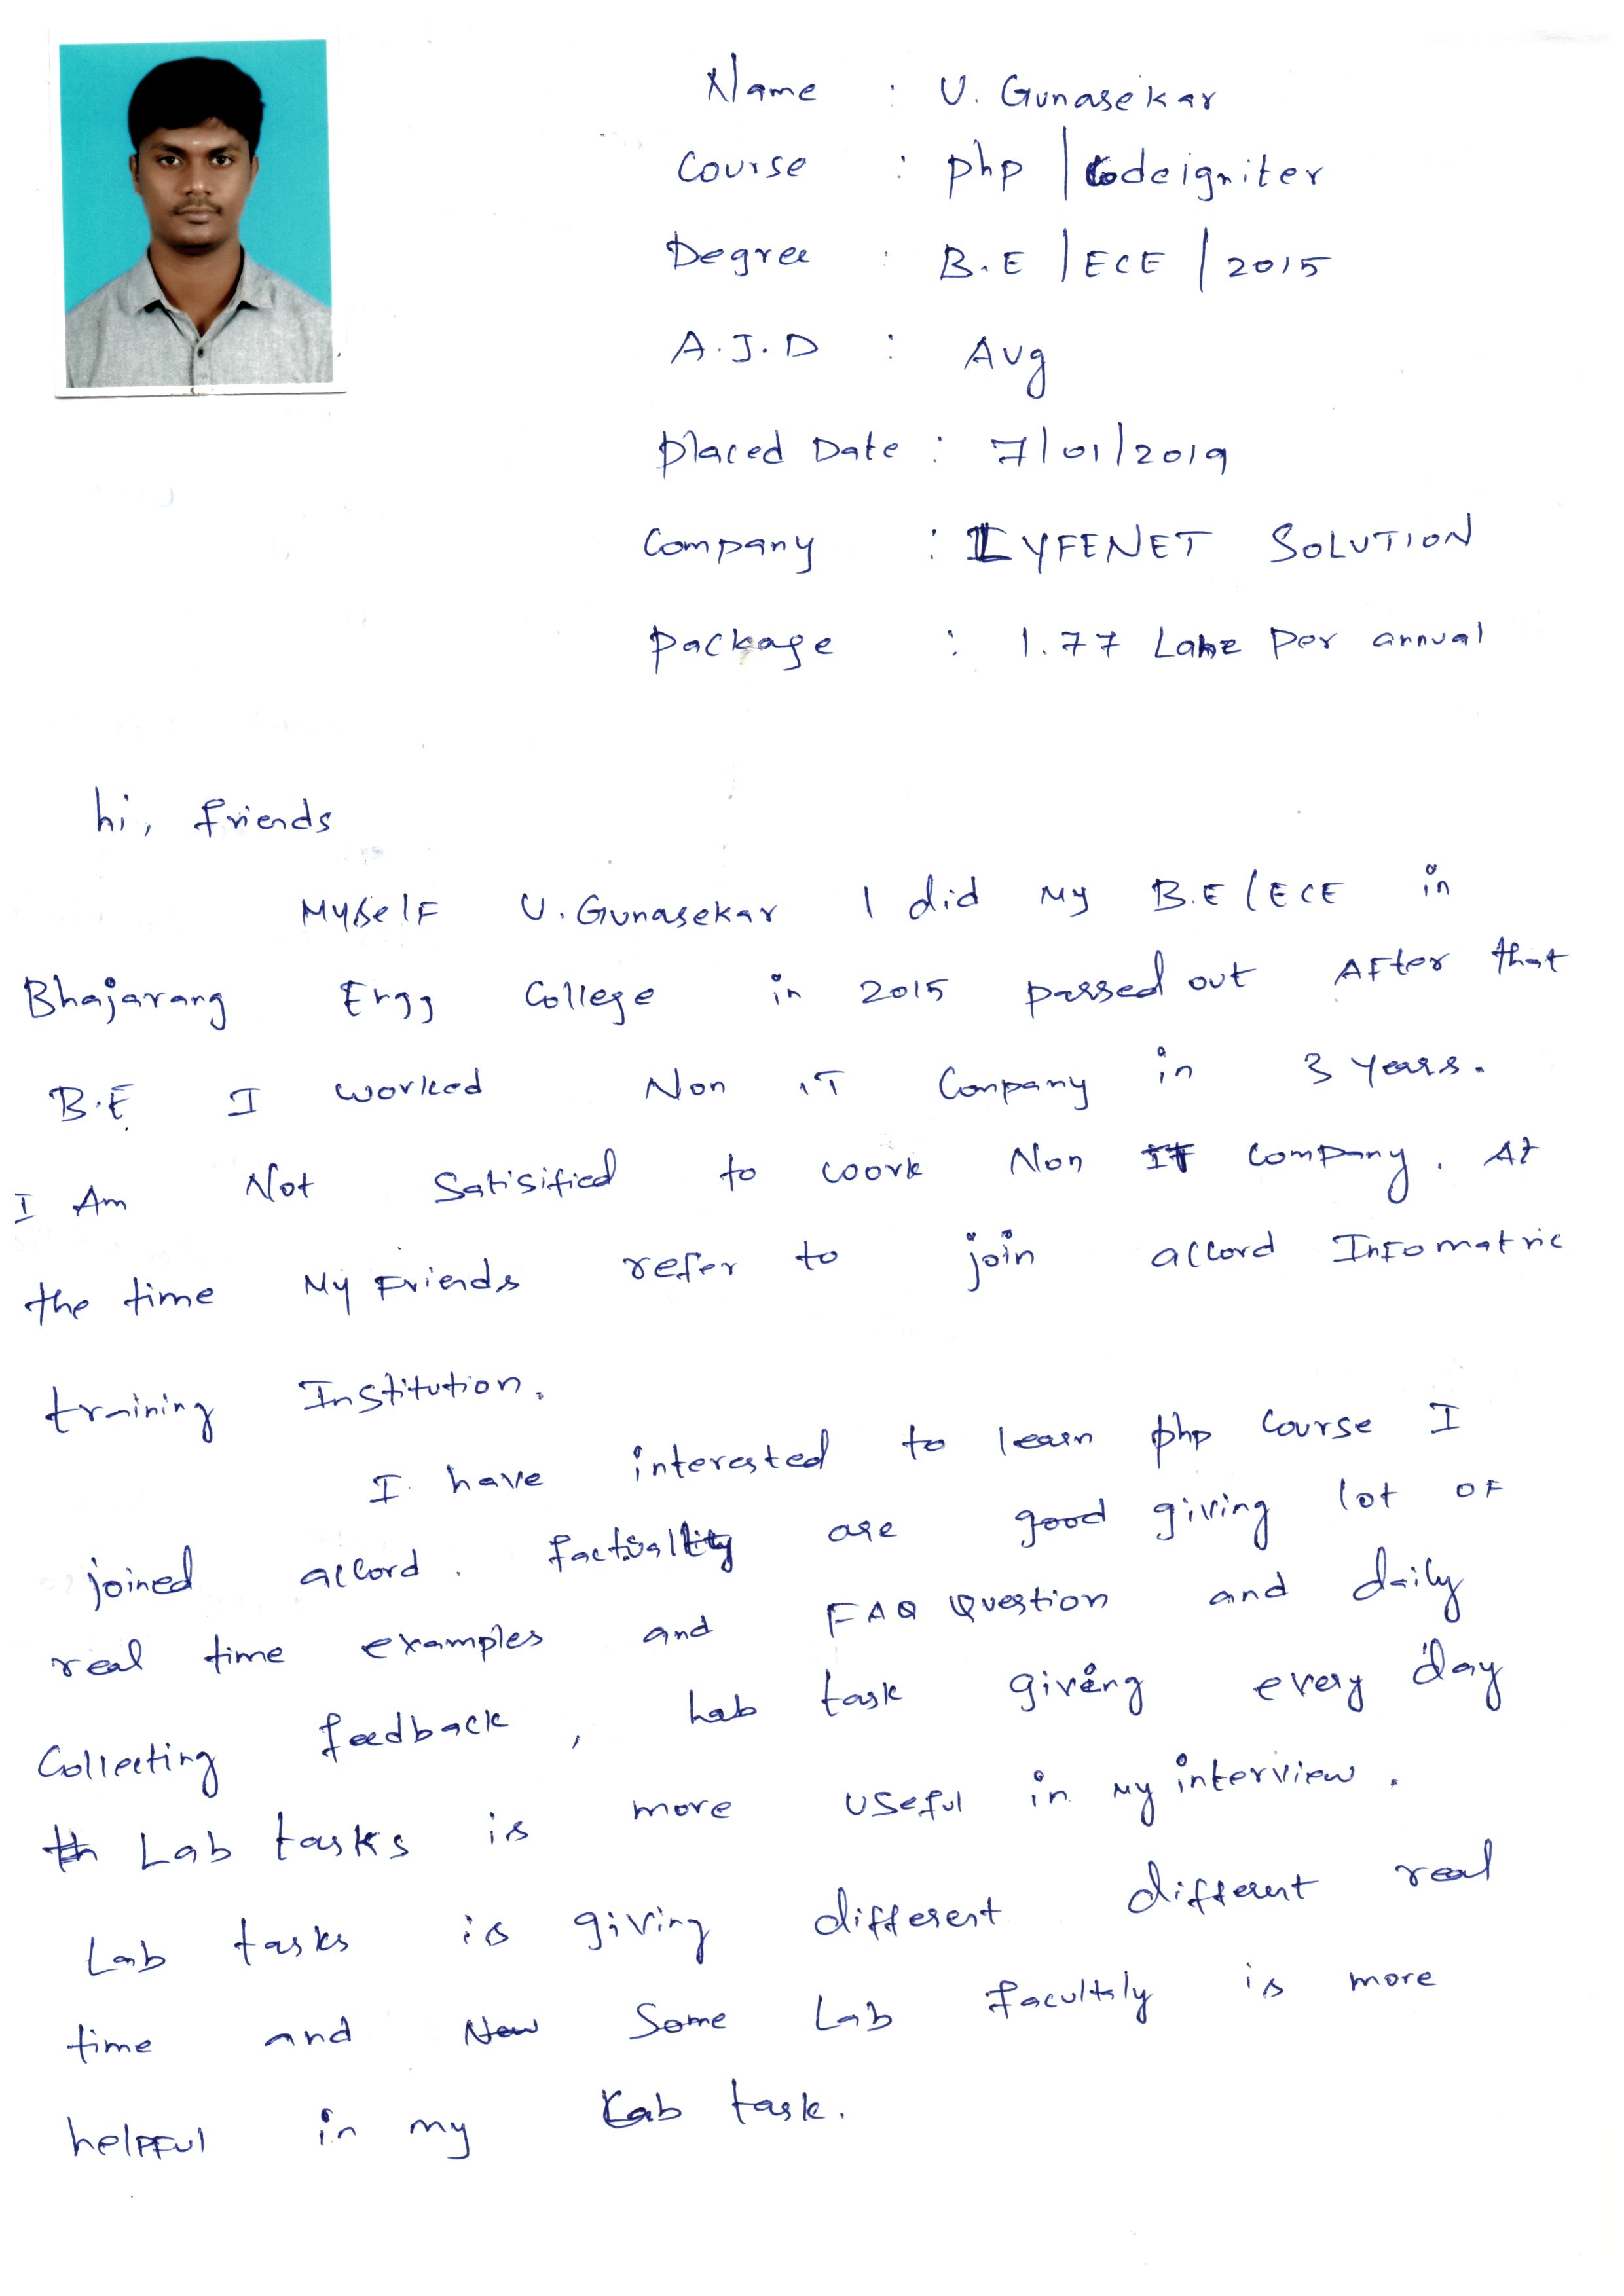 Name : U. Gunasekar
Course : php | Codeigniter
Degree : B.E | ECE | 2015
A.J.D : Aug
placed Date : 7/01/2019
Company : LYFENET SOLUTION
package : 1.77 Per annual
hi, friends
Myself U. Gunasekar I did My B.E/ECE in
Bhajarang Engg College in 2015 passed out After that
B.E I worked Non IT Company in 3 years.
I Am Not Satisified to work Non IT Company. At
the time My Friends refer to join accord Infomatric
training Institution.
I have interested to learn php Course I
joined accord. are good giving lot of
real time examples and FAQ Question and daily
Collecting feedback, Lab task giving every day
Lab tasks is more useful in my interview.
Lab tasks is giving different different real
time and Some Lab is more
helpful in my Lab task.